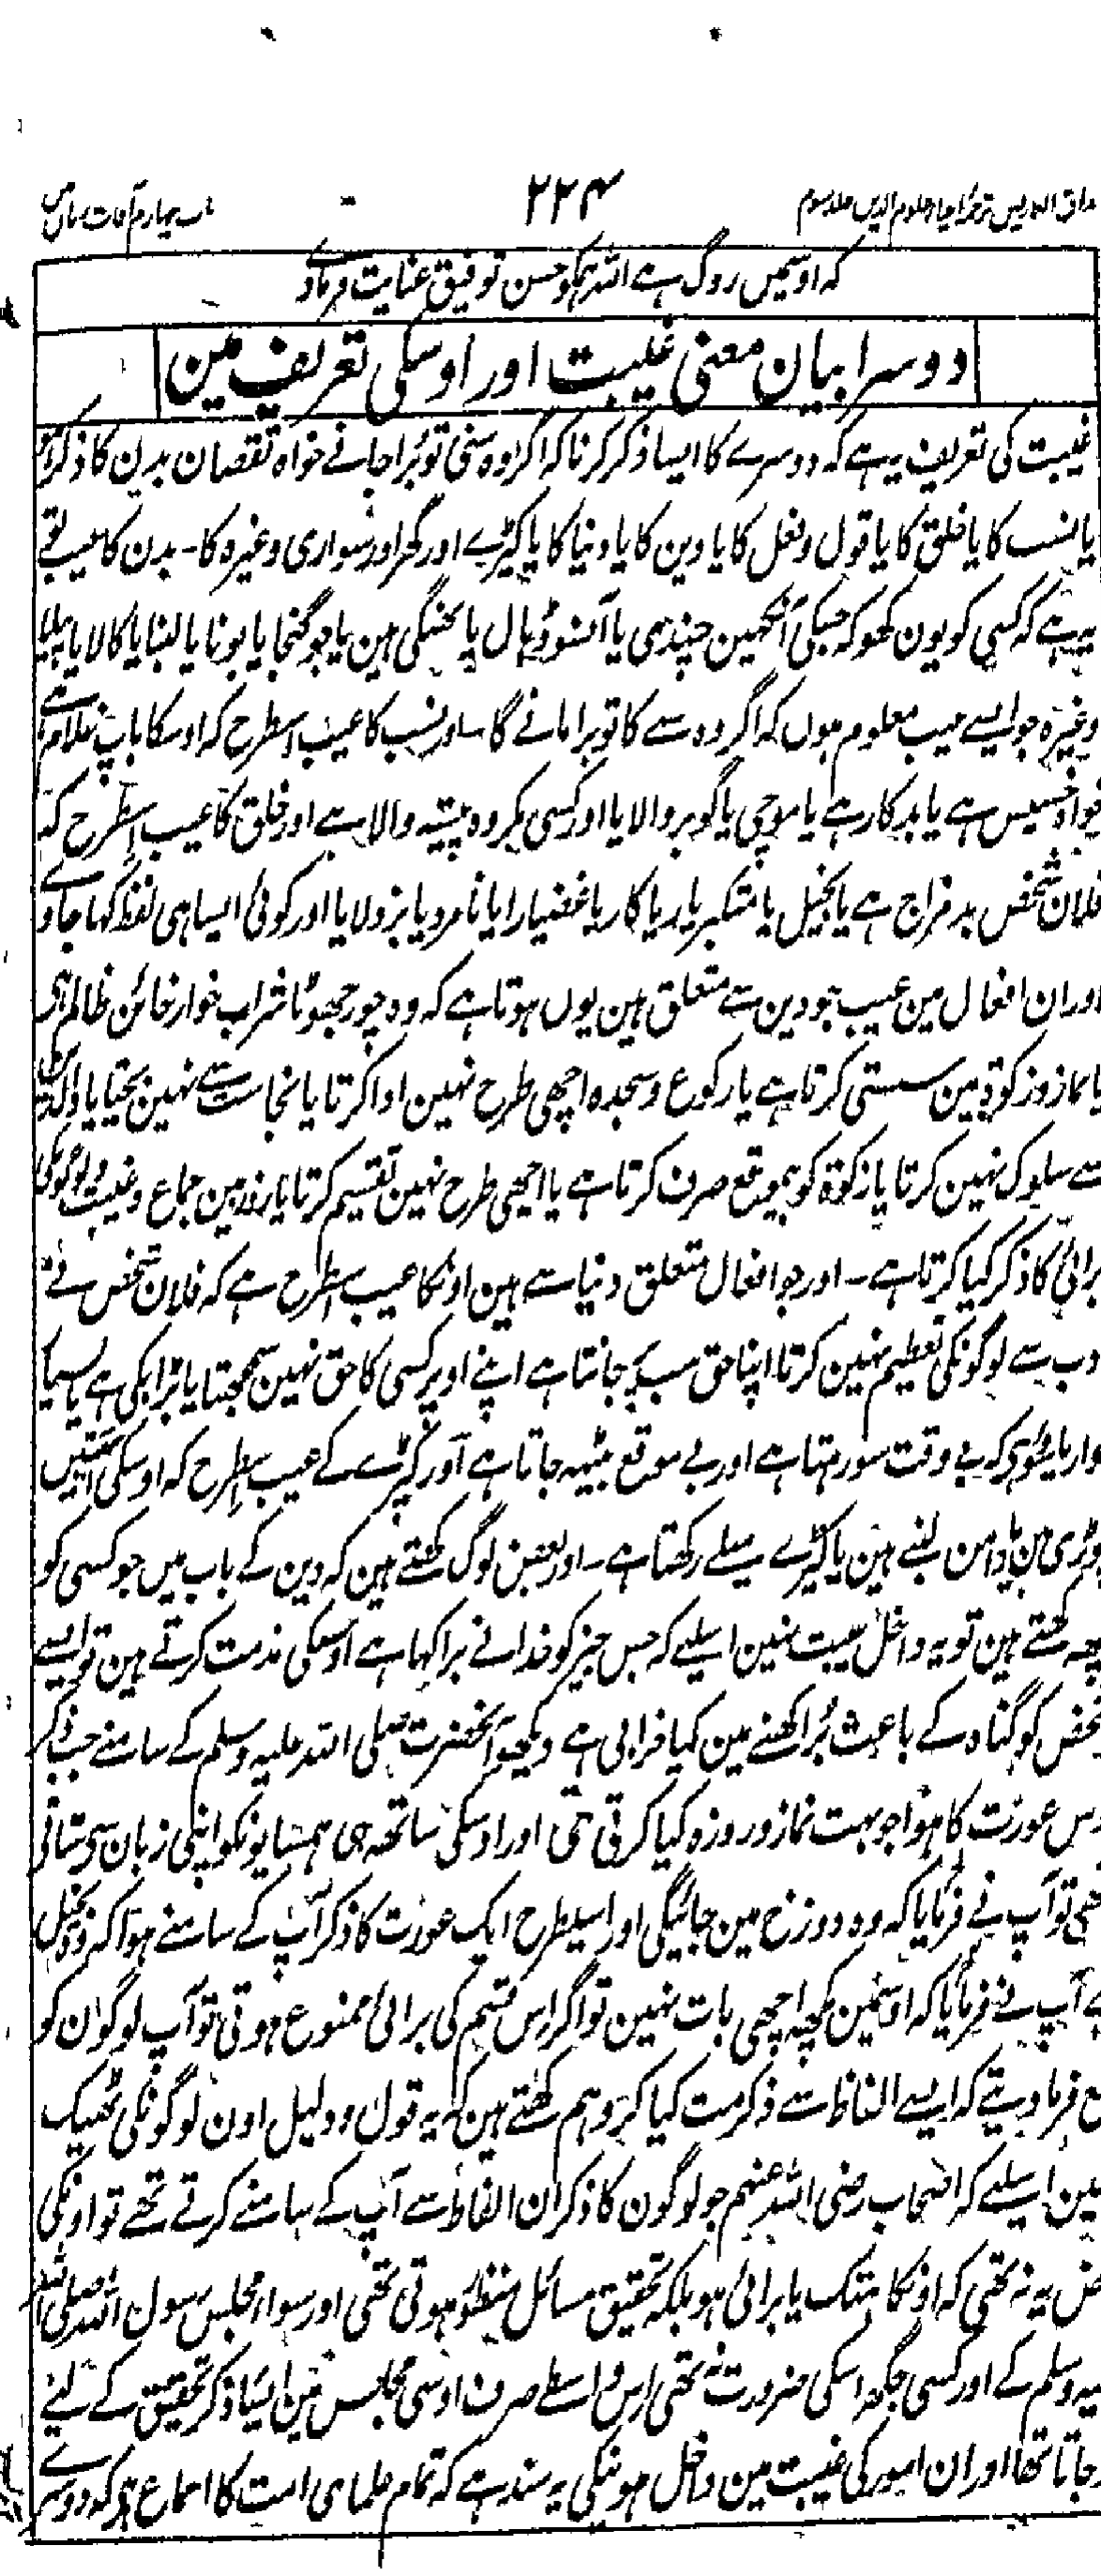 مذاق العارفین ترجمہ احیاء علوم الدین جلد سوم
۲۲۴
باب چہارم آفات زبان میں
کہ اوسمیں روگ ہے اللہ ہمکو حسن توفیق عنایت فرماوے
دوسرا بیان معنی غیبت اور اوسکی تعریف مین
غیبت کی تعریف یہ ہے کہ دوسرے کا ایسا ذکر کرنا کہ اگر وہ سنی تو بُرا جانے خواہ نقصان بدن کا ذکر ہو
یا نسب کا یا خلق کا یا قول و فعل کا یا دین کا یا دنیا کا یا کپڑے اور گھر اور سواری وغیرہ کا ۔ بدن کا عیب تو
یہ ہے کہ کسی کو یون کہو کہ جسکی آنکھین چندھی یا آنسو ڈہال یا بھنگی ہین یا جو گنجا یا بونا یا لنبا یا کالا یا پیلا
وغیرہ جو ایسے عیب معلوم ہوں کہ اگر وہ سنے گا تو برا مانے گا ۔ اور نسب کا عیب اسطرح کہ اوسکا باپ غلام ہے
خواہ خسیس ہے یا بدکار ہے یا موچی یا گوبر والا یا اور کسی مکروہ پیشہ والا ہے اور خلق کا عیب اسطرح کہ
فلان شخص بد مزاج ہے یا بخیل یا متکبر یا ریاکار یا غضیارا یا نامرد یا بزدلا یا اور کوئی ایسا ہی لفظ کہا جاوے
اور ان افعال مین عیب جو دین سے متعلق ہین یوں ہوتا ہے کہ وہ چور جھوٹا شراب خوار خائن ظالم ہی
یا نماز و زکوۃ مین سستی کرتا ہے یا رکوع و سجدہ اچھی طرح نہین ادا کرتا یا نجاست سے نہین بچتا یا والدین
سے سلوک نہین کرتا یا زکوۃ کو بیموقع صرف کرتا ہے یا اچھی طرح نہین تقسیم کرتا یا روزہ مین جماع و غیبت و لوگونکی
برائی کا ذکر کیا کرتا ہے ۔ اور جو افعال متعلق دنیا سے ہین اونکا عیب اسطرح ہے کہ فلان شخص بے
ادب ہے لوگونکی تعظیم نہین کرتا اپنا حق سب پر جانتا ہے اپنے اوپر کسی کا حق نہین سمجھتا یا بڑا بکی ہے یا بسیار
خوار یا سوؤ ہی کہ بے وقت سو رہتا ہے اور بے موقع بیٹھہ جاتا ہے اور کپڑے کے عیب اسطرح کہ اوسکی آستین
چوڑی ہین یا دامن لنبے ہین یا کپڑے میلے رکھتا ہے ۔ اور بعض لوگ کہتے ہین کہ دین کے باب میں جو کسی کو
کچھ کہتے ہین تو یہ داخل غیبت نہین اسلیے کہ جس چیز کو خدا نے برا کہا ہے اوسکی مذمت کرتے ہین تو ایسے
شخص کو گناہ کے باعث بُرا کہنے مین کیا خرابی ہے دیکھو آنحضرت صلی اللہ علیہ وسلم کے سامنے جب ذکر
اوس عورت کا ہوا جو بہت نماز و روزہ کیا کرتی تھی اور اوسکی ساتھہ ہی ہمسایونکو اپنی زبان سی ستاتی
تھی تو آپ نے فرمایا کہ وہ دوزخ مین جائیگی اور اسیطرح ایک عورت کا ذکر آپ کے سامنے ہوا کہ وہ بخیل
ہے آپ نے فرمایا کہ اوسمین کچھہ اچھی بات نہین تو اگر اس قسم کی برائی ممنوع ہوتی تو آپ لوگون کو
منع فرما دیتے کہ ایسے الفاظ سے ذکر مت کیا کرو ہم کہتے ہین کہ یہ قول و دلیل اون لوگونکی ٹھیک
نہین اسلیے کہ اصحاب رضی اللہ عنہم جو لوگون کا ذکر ان الفاظ سے آپ کے سامنے کرتے تھے تو اونکی
غرض یہ نہ تھی کہ اونکا ہتک یا برائی ہو بلکہ تحقیق مسائل منظور ہوتی تھی اور سواء مجلس رسول اللہ صلی اللہ
علیہ وسلم کے اور کسی جگہ اسکی ضرورت نہ تھی اس واسطے صرف اوسی مجلس مین ایسا ذکر تحقیق کے لئے
کیا جاتا تھا اور ان امور کی غیبت مین داخل ہونیکی یہ سند ہے کہ تمام علمای امت کا اجماع ہی کہ دوسرے